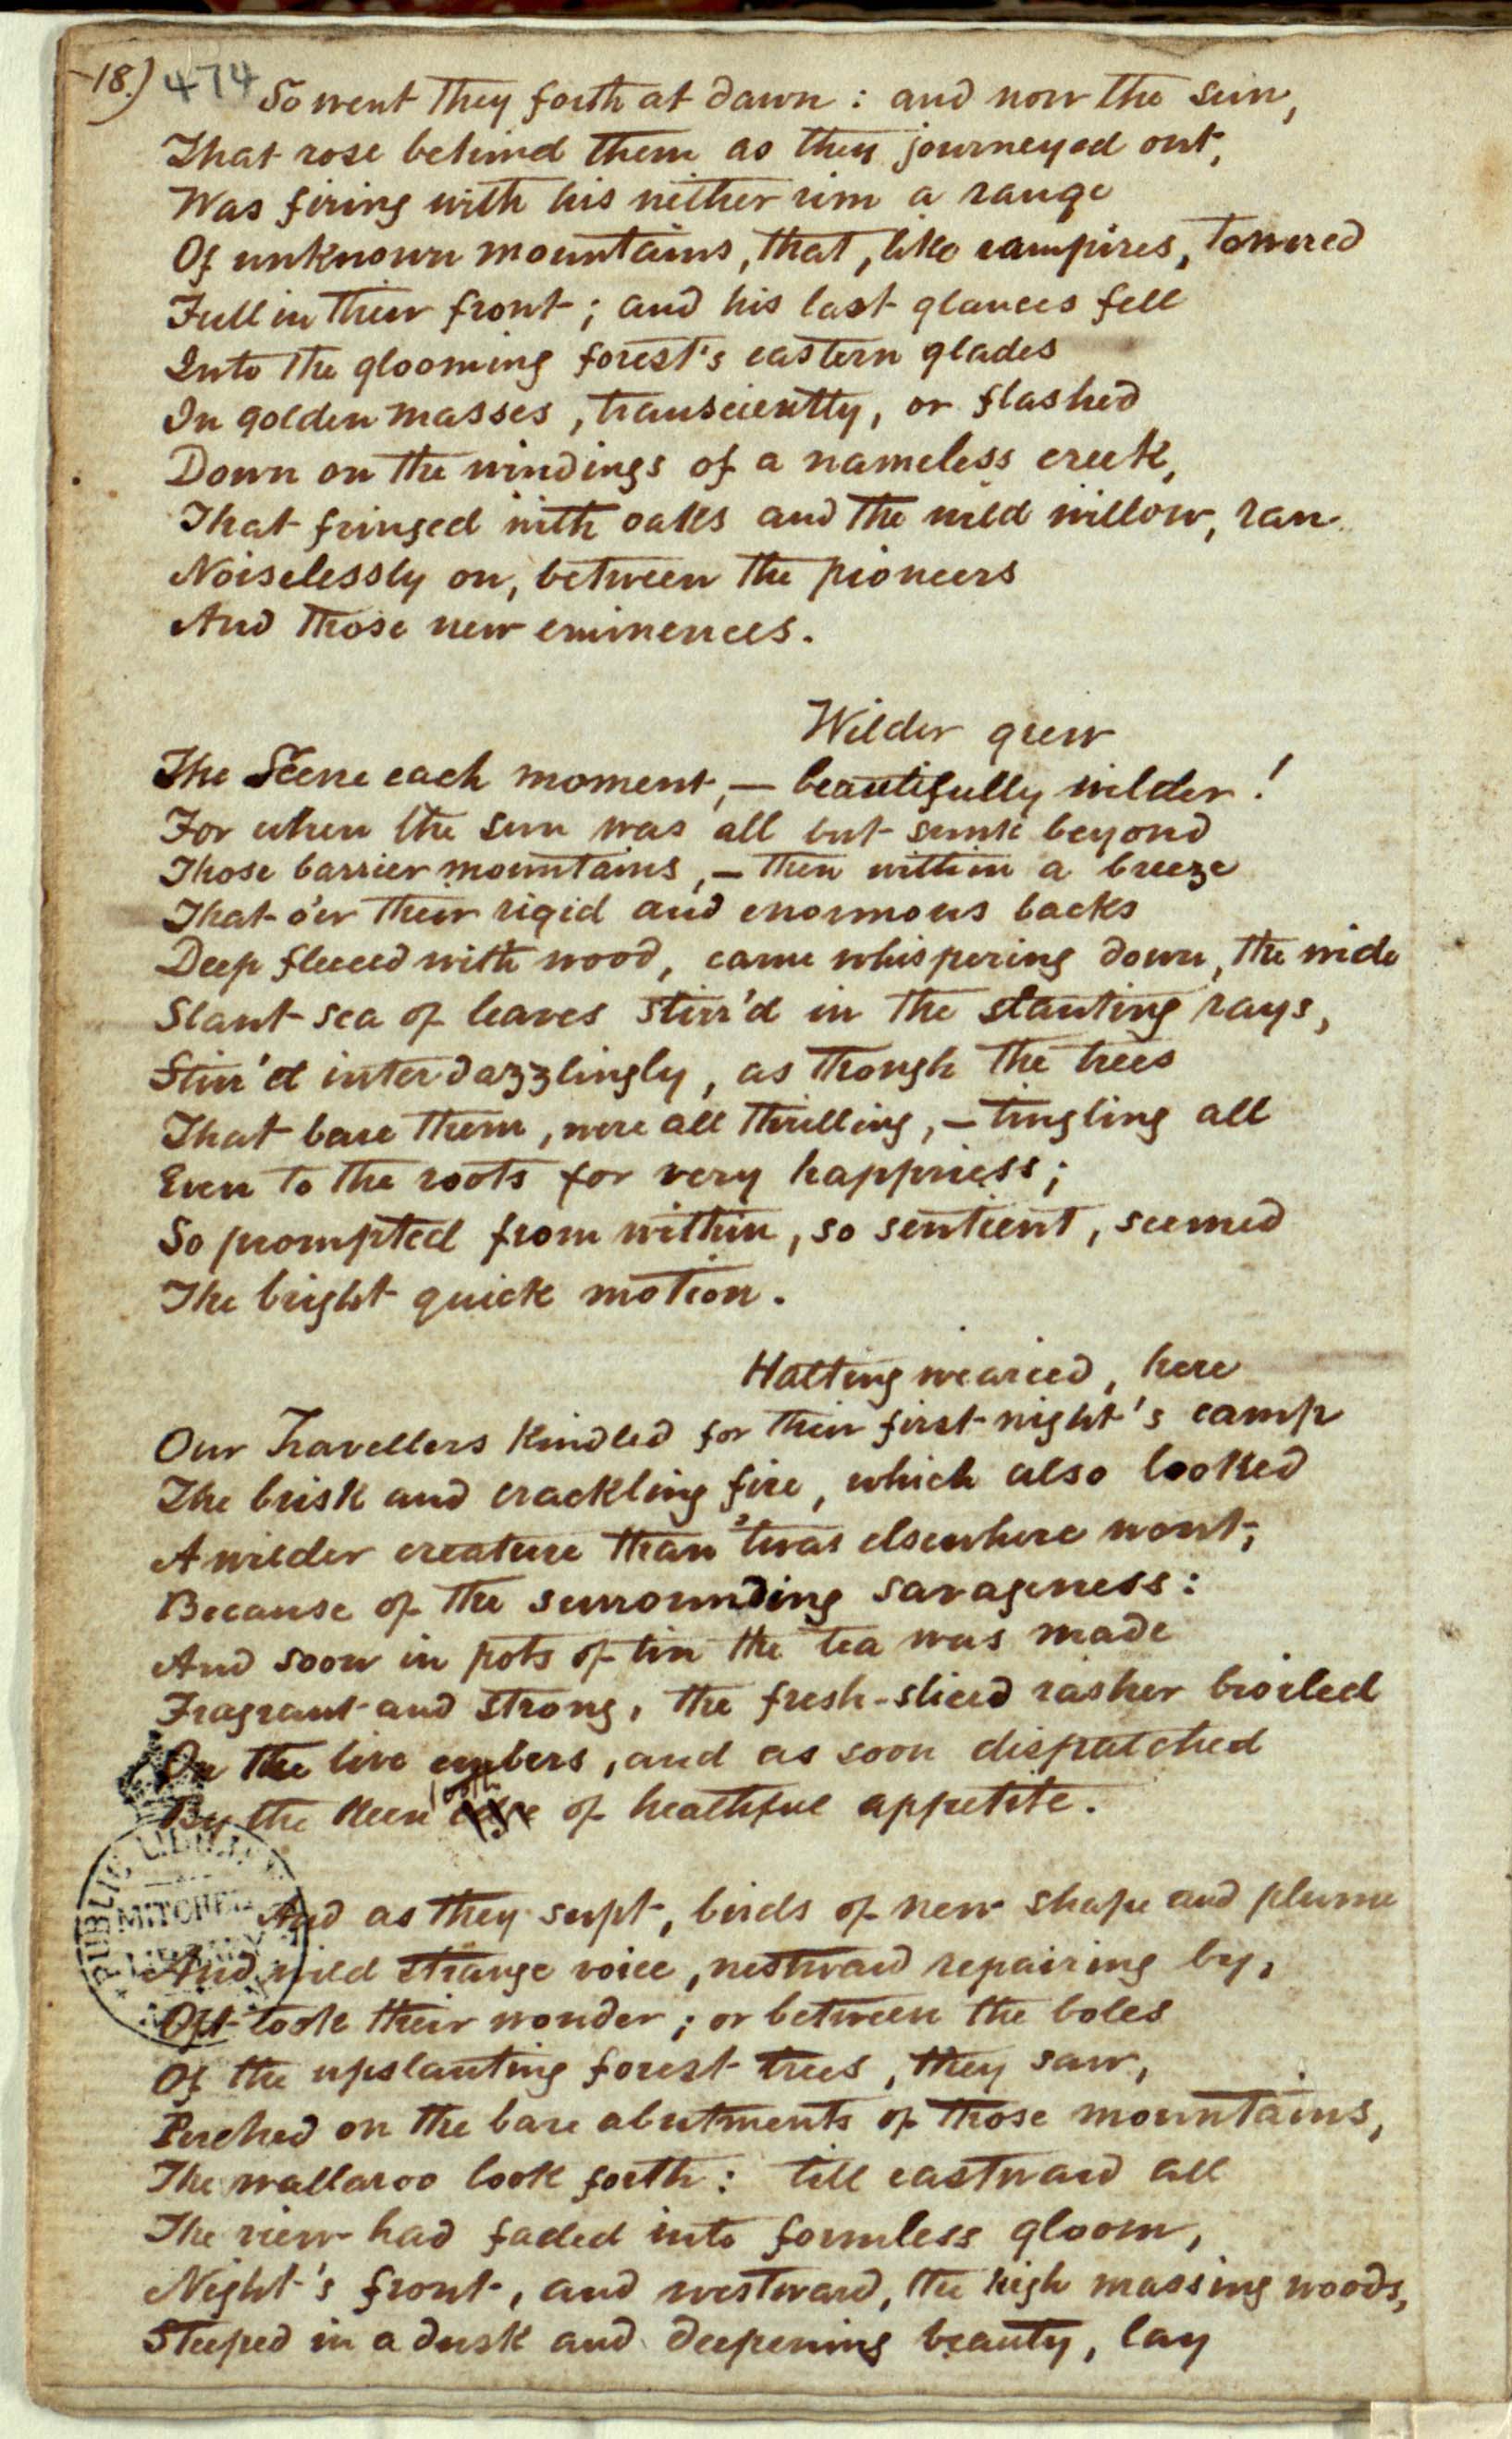 18.) 474 So went they forth at dawn : and now the sun,
That rose behind them as they journeyed out,
Was firing with his nether rim a range
Of unknown mountains, that, like vampires, towered
Full in their front ; and his last glances fell
Into the glooming forest's eastern glades
In golden masses, transciently, or flashed
Down on the windings of a nameless creek,
That fringed with oaks and the wild willow, ran
Noiselessly on, between the pioneers
And those new eminences.
Wilder grew
The Scene each moment, — beautifully wilder !
For when the sun was all but sunk beyond
Those barrier mountains, — then within a breeze
That o'er their rigid and enormous backs
Deep fleeced with wood, came whispering down, the wide
Slant sea of leaves stirr'd in the slanting rays,
Stirr'd interdazzlingly, as though the trees
That bare them, were all thrilling, — tingling all
Even to the roots for very happiness ;
So prompted from within, so sentient, seemed
The bright quick motion.
Halting wearied, here
Our Travellers kindled for their first night's camp
The brisk and crackling fire, which also looked
A wilder creature than 'twas elsewhere wont,
Because of the surrounding savageness :
And soon in pots of tin the tea was made
Fragrant and strong, the fresh-sliced rasher broiled
On the live embers, and as soon dispatched
By the keen tooth of healthful appetite.
And as they supt, birds of new shape and plume
And wild strange voice, nestward repairing by,
Oft took their wonder ; or between the boles
Of the upslanting forest trees, they saw,
Perched on the bare abutments of those mountains,
The wallaroo look forth : till eastward all
The view had faded into formless gloom,
Night's front, and westward, the high massing woods,
Steeped in a dusk and deepening beauty, lay
PUBLIC LIBRARY
MITCHELL
LIBRARY